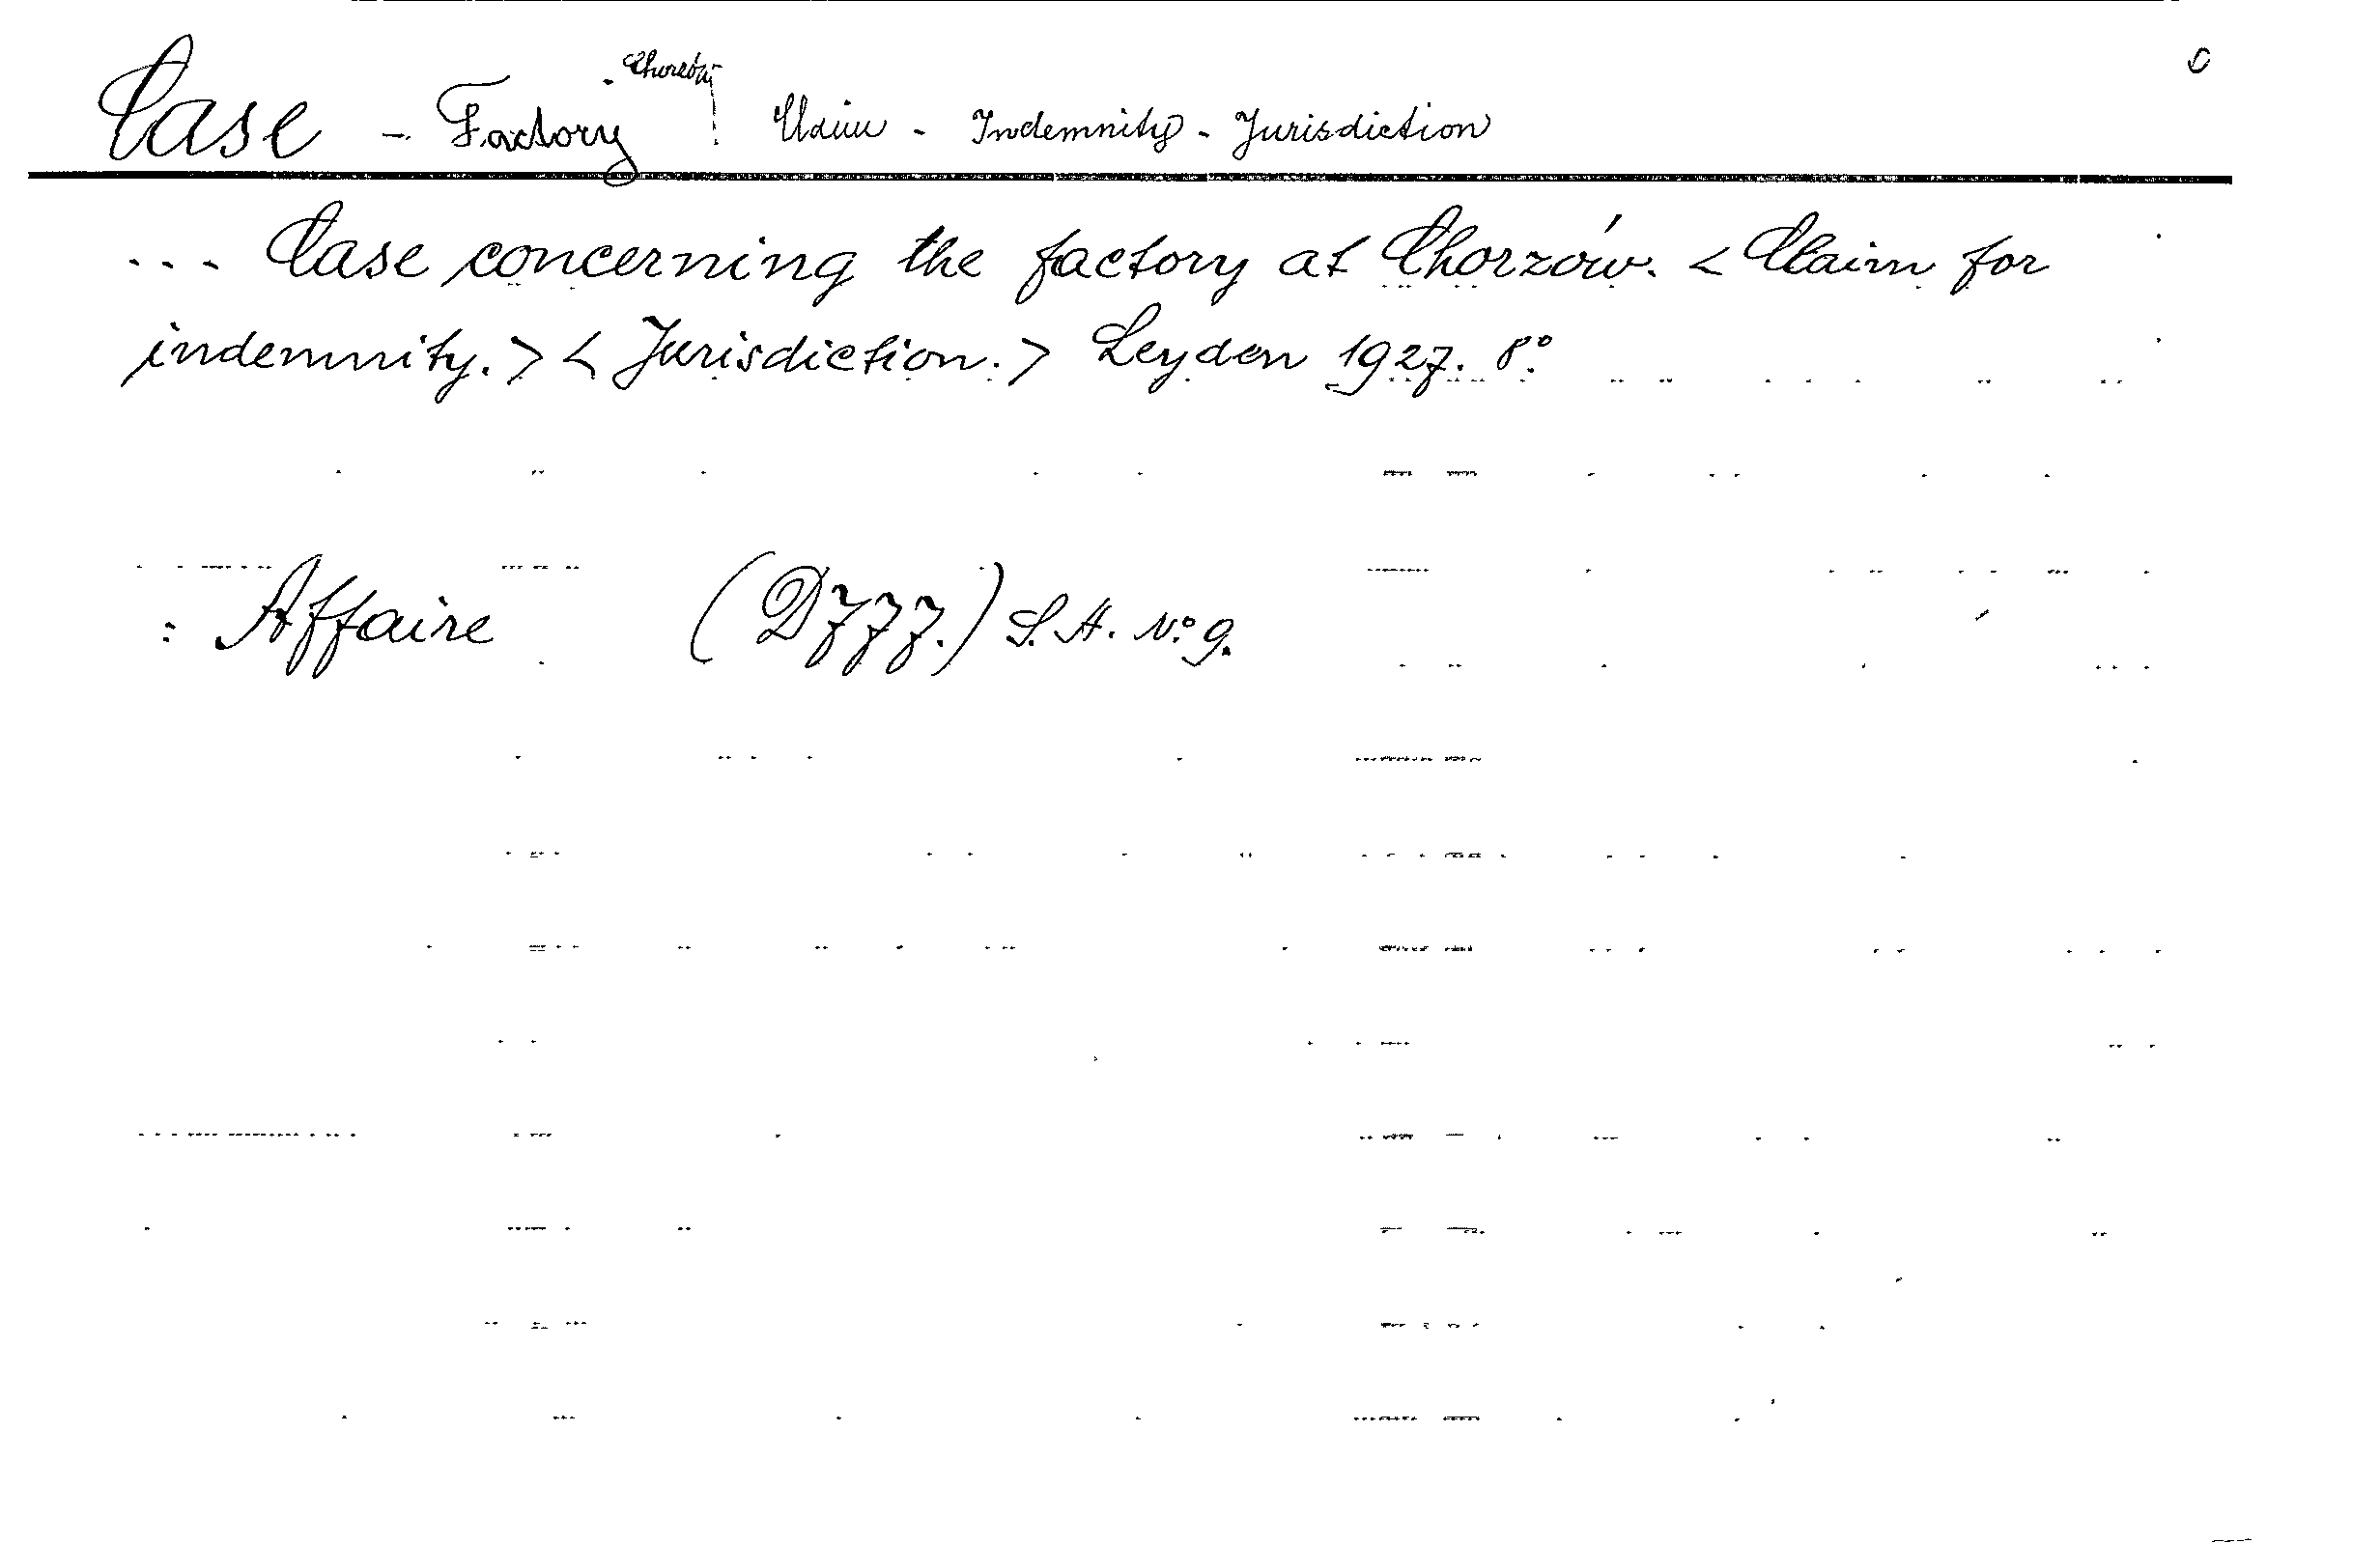 Case - Factory - Claim - Indemnity - Jurisdiction
... Case concerning the factory at Chorzów. < Claim for
indemnity. > < Jurisdiction. > Leyden 1927. 8°.
: Affaire (D777.) S.A. No. 9.